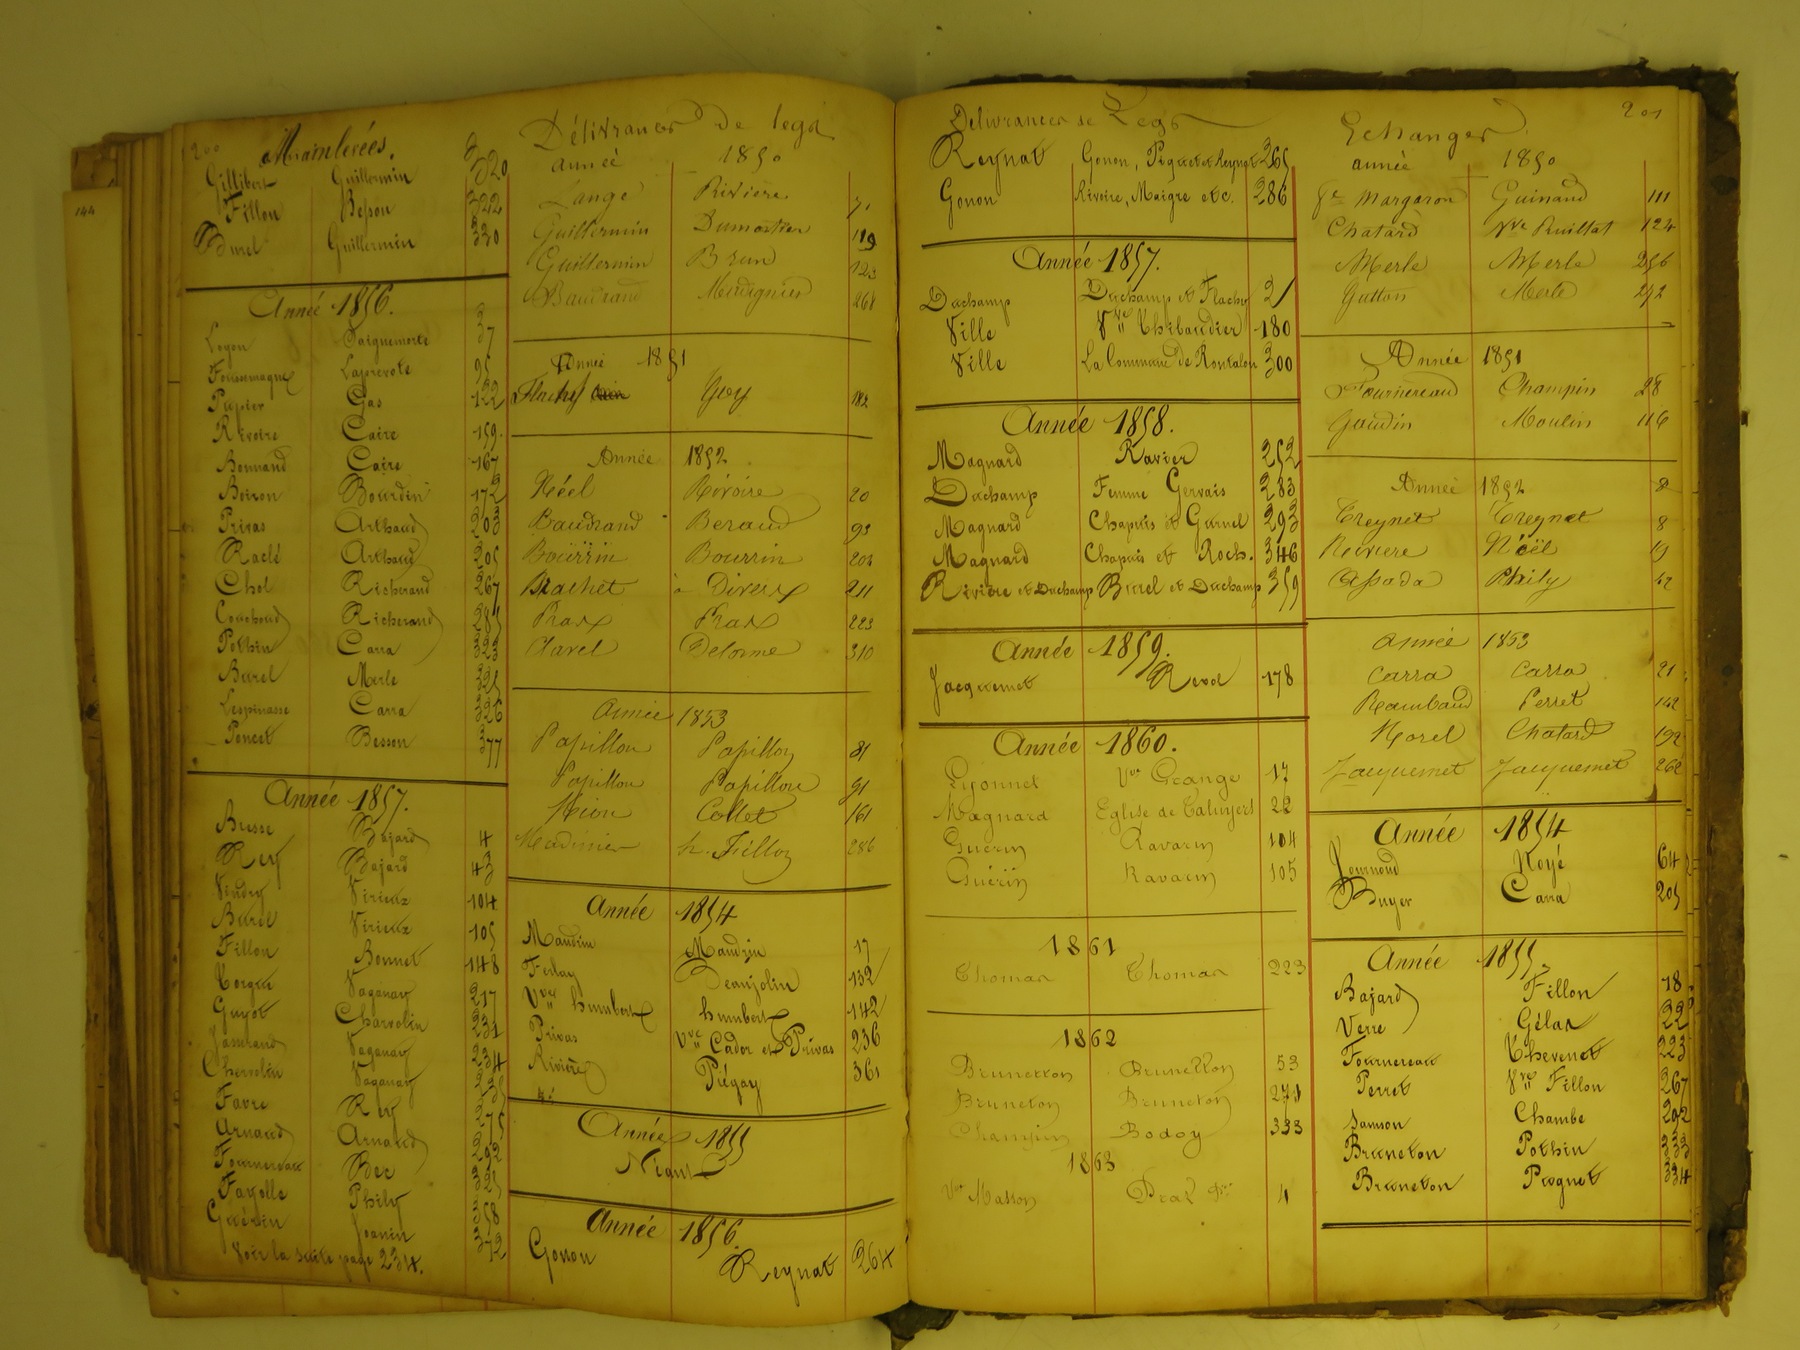 144
200
Mainlevées.
Gillibert Guillermin 320
Fillon Besson 322
Burel Guillermin 330
Année 1856.
Loyon Daiguemorte 37
Foussemagne Laprevote 95
Pupier Gas 122
Rivoire Caire 159.
Bonnand Caire 167
Boiron Bourdin 172
Privas Arthaud 203
Raclé Arthaud 205
Chol Richerand 267
Couchoud Richerand 285
Pothin Carra 323
Burel Merle 325
Lespinasse Carra 326
Poncet Besson 377
Année 1857.
Bresse Bajard 4
Rey Bajard 43
Vindry Virieux 104
Burel Virieux 105
Fillon Bonnet 148
Vaganay 217
Guyot Charvolin 231
Jasserand Vaganay 234
Chervolin Vaganay
Favre Rey
Arnaud Arnaud
Fournereau Bec
Fayolle Phily
Guérin Joanin 372
Voir la suite page 234.
Délivrances de legs
année 1850
Lange Rivière 71
Guillermin Dumortier 119
Guillermin Brun 123
Baudrand Meurgnier 268
Année 1851
Flachy Guy 182
Année 1852
Néel Rivoire 20
Baudrand Beraud 93
Bourrin Bourrin 204
Brachet à Divers 211
Prax Prax 223
Clavel Delorme 310
Année 1853
Papillon Papillon 81
Papillon Papillon 91
Collet 161
h. Fillon 286
Année 1854
Maudrin Maudrin 17
Ferlay Deaujolin 132
Vve humbert humbert 142
Privas Vve Cador et Privas 236
Rivière Piégay 361
Année 1855
Néant
Année 1856.
Gonon Reynat 264
Délivrances de Legs
Reynat Gonon, Piquet et Reynat 365
Gonon Rivoire, Maigre etc. 286
Année 1857.
Duchamp Duchamp et Flachy 21
Ville Vve Thibaudier 180
Ville La Commune de Rontalon 300
Année 1858.
Magnard Ravier 252
Duchamp Femme Gervais 283
Magnard Chapuis et Gurnel 293
Magnard Chapuis et Roch. 346
Rivière et Duchamp Burel et Duchamp 359
Année 1859.
Jacquemet Revol 178
Année 1860.
Lyonnet Vve Grange 17
Magnard Eglise de Taluyers 22
Guérin Ravarin 104
Guérin Ravarin 105
1861
Thomas Thomas 223
1862
Bruneton Bruneton 53
Bruneton Bruneton 271
Champin Bodoy 333
1863
Vve Masson 4
201
Echanges
année 1850
Margaron Guinand 111
Chatard Vve Ruillat 124
Merle Merle 256
Gutton Merle 292
Année 1851
Fournereau Champin 28
Goudin Moulin 116
Année 1852 8
Treynet Treynet 8
Riviere Noël 19
Assada Phily 42
année 1853
Carra Carra 21
Rambaud Perret 142
Morel Chatard 192
Jacquemet Jacquemet 262
Année 1854
Journoud Noyé 64
Buyer Carra 205
Année 1855.
Bajard Fillon 18
Verre Gélas 22
Fournereau Thevenet 223
Perret Vve Fillon 267
Samson Chambe 292
Bruneton Pothin 333
Bruneton Pugnet 334